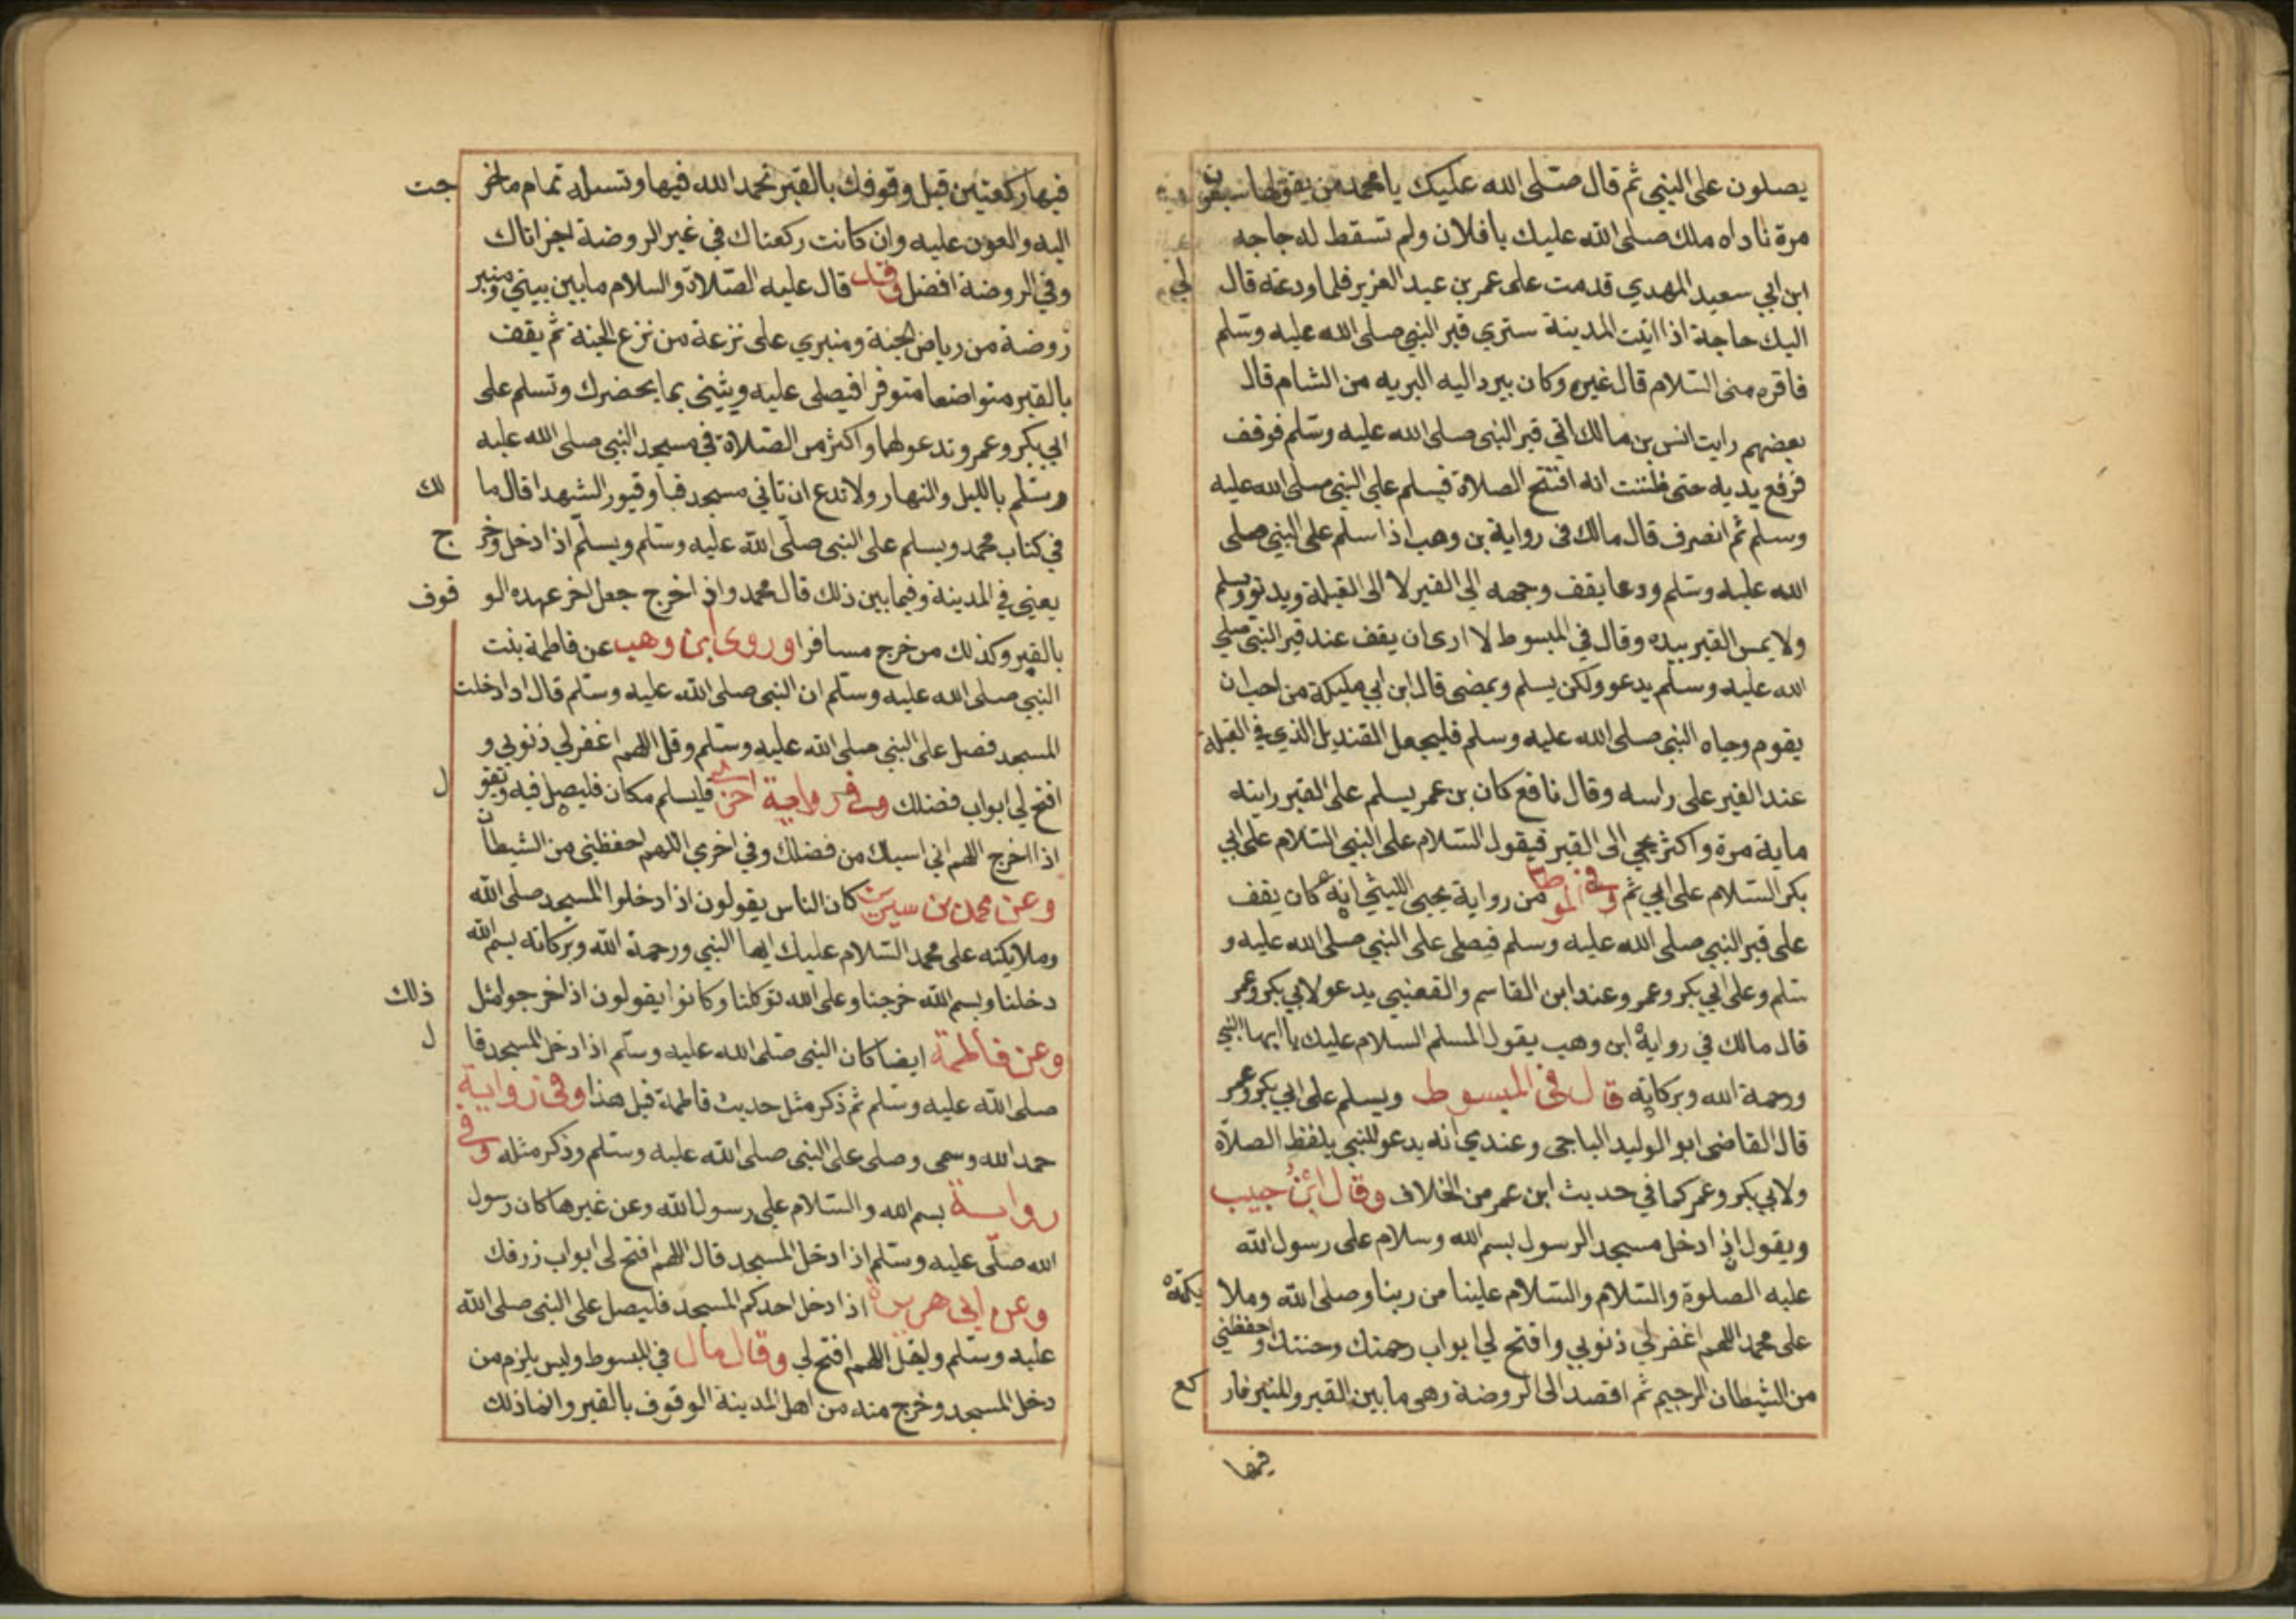 يصلون على النبي ثم قال صلى الله عليك يا محمد من يقولها سبعين
مرة ناداه ملك صلى الله عليك يا فلان ولم تسقط له حاجه
ابن ابي سعيد المهدي قدمت على عمر بن عبد العزيز فلما ودعته قال لي
اليك حاجة اذا اتيت المدينة ستري قبر النبي صلى الله عليه وسلم
فاقره مني السلام قال غيره وكان يبرد اليه البريه من الشام قال
بعضهم رايت انس بن مالك اتي قبر النبي صلى الله عليه وسلم فوقف
فرفع يديه حتى ظننت انه افتتح الصلاة فيسلم علي النبي صلى الله عليه
وسلم ثم انصرف قال مالك في رواية بن وهب اذا سلم على النبي صلى
الله عليه وسلم ودعا يقف وجهه الى القبر لا الى القبلة ويدنو ويسلم
ولا يمس القبر بيده وقال في المبسوط لا ارى ان يقف عند قبر النبي صلي
الله عليه وسلم يدعو ولكن يسلم ويمضي قال ابن ابي مليكة من احب ان
يقوم وجاه النبي صلى الله عليه وسلم فليجعل القنديل الذي في القبلة
عند القبر على راسه وقال نافع كان بن عمر يسلم على القبر رايته
ماية مرة واكثر يجي الى القبر فيقول السلام على النبي السلام على ابي
بكر السلام على ابي ثم وفي الموطا من رواية يحيى الليثي انه كان يقف
على قبر النبي صلى الله عليه وسلم فيصلى على النبي صلى الله عليه و
سلم وعلى ابي بكر وعمر وعند ابن القاسم والقعنبي يدعو لابي بكر وعمر
قال مالك في رواية ابن وهب يقول المسلم السلام عليك يا ايها النبي
ورحمة الله وبركاته قال في المبسوط ويسلم على ابي بكر وعمر
قال القاضي ابو الوليد الباجي وعندي انه يدعو للنبي بلفظ الصلاة
ولابي بكر وعمر كما في حديث ابن عمر من الخلاف وقال ابن حبيب
ويقول اذا دخل مسجد الرسول بسم الله وسلام على رسول الله
عليه الصلوة والسلام والسلام علينا من ربنا وصلى الله وملا يكته
على محمد اللهم اغفر لي ذنوبي وافتح لي ابواب رحمتك وجنتك واحفظني
من الشيطان الرجيم ثم اقصد الى الروضة وهي ما بين القبر والمنبر فار كع
فيها
فيها ركعتين قبل وقوفك بالقبر تحمد الله فيها وتسله تمام ما خر جت
اليه والعون عليه وان كانت ركعتاك في غير الروضة اجزاتاك
وفي الروضة افضل وقد قال عليه الصلاة والسلام ما بين بيتي ومنبر
روضة من رياض الجنة ومنبري على نزعة من نزع الجنة ثم يقف
بالقبر متواضعا متوقرا فيصلى عليه ويثني بما يحضرك وتسلم على
ابي بكر وعمر وتدعو لهما واكثر من الصلاة في مسجد النبي صلى الله عليه
وسلم بالليل والنهار ولا تدع ان تاتي مسجد قبا وقبور الشهدا قال ما لك
في كتاب محمد ويسلم على النبي صلى الله عليه وسلم ويسلم اذا دخل وخر ج
يعني في المدينة وفيما بين ذلك قال محمد واذا خرج جعل اخر عهده الو قوف
بالقبر وكذلك من خرج مسافرا وروى ابن وهب عن فاطمة بنت
النبي صلى الله عليه وسلم ان النبي صلى الله عليه وسلم قال اذا دخلت
المسجد فصل على النبي صلى الله عليه وسلم وقل اللهم اغفر لي ذنوبي و
افتح لي ابواب فضلك وفي رواية اخرى فليسلم مكان فليصل فيه ويقو ل
اذا اخرج اللهم اني اسيلك من فضلك وفي اخري اللهم احفظني من الشيطان
وعن محمد بن سيرين كان الناس يقولون اذا دخلوا المسجد صلى الله
وملايكته على محمد السلام عليك ايها النبي ورحمة الله وبركاته بسم الله
دخلنا وبسم الله خرجنا وعلى الله توكلنا وكانوا يقولون اذا خرجوا مثل ذلك
وعن فاطمة ايضا كان النبي صلى الله عليه وسلم اذا دخل المسجد قا ل
صلى الله عليه وسلم ثم ذكر مثل حديث فاطمة قبل هذا وفي رواية
حمد الله وسمى وصلى على النبي صلى الله عليه وسلم وذكر مثله وفي
رواية بسم الله والسلام علي رسول الله وعن غيرها كان رسول
الله صلى عليه وسلم اذا دخل المسجد قال اللهم افتح لي ابواب زرقك
وعن ابي هريرة اذا دخل احدكم المسجد فليصل على النبي صلى الله
عليه وسلم وليقل اللهم افتح لي وقال مال في المبسوط وليس يلزم من
دخل المسجد وخرج منه من اهل المدينة الوقوف بالقبر وانما ذلك